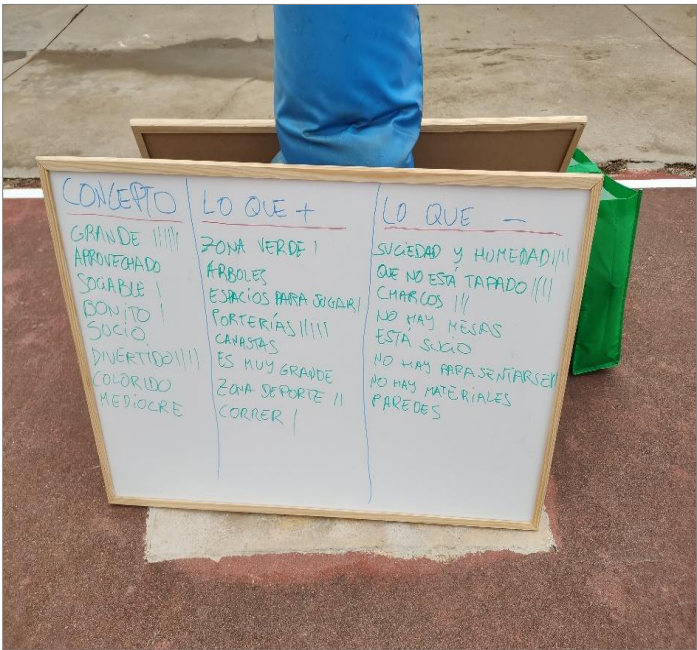 CONCEPTO
GRANDE ||||||
APROVECHADO
SOCIABLE |
BONITO |
SUCIO
DIVERTIDO|||||
COLORIDO
MEDIOCRE
LO QUE +
ZONA VERDE |
ÁRBOLES
ESPACIOS PARA JUGAR|
PORTERÍAS|||||
CANASTAS
ES MUY GRANDE
ZONA DEPORTE ||
CORRER |
LO QUE -
SUCIEDAD Y HUMEDAD||||
QUE NO ESTÁ TAPADO ||||
CHARCOS |||
NO HAY MESAS
ESTÁ SUCIO
NO HAY PARA SENTARSE||
NO HAY MATERIALES
PAREDES